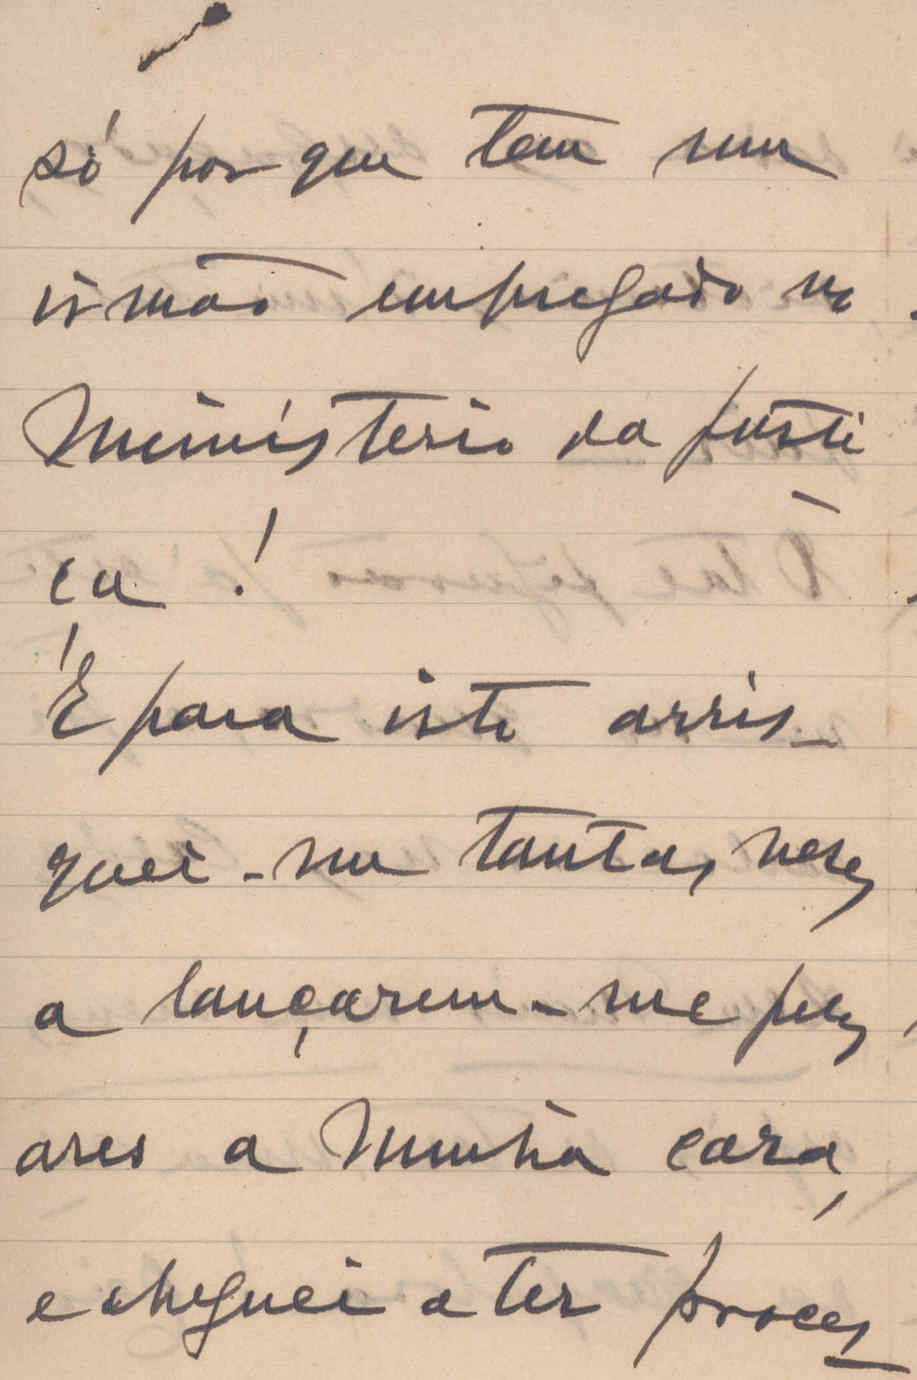 só porque tem um
irmão empregado no
Ministerio da Justi
ca!
É para isto arris-
quei-me tantas veses
a lançarem-me pelos
ares a minha casa,
e cheguei a ter proces